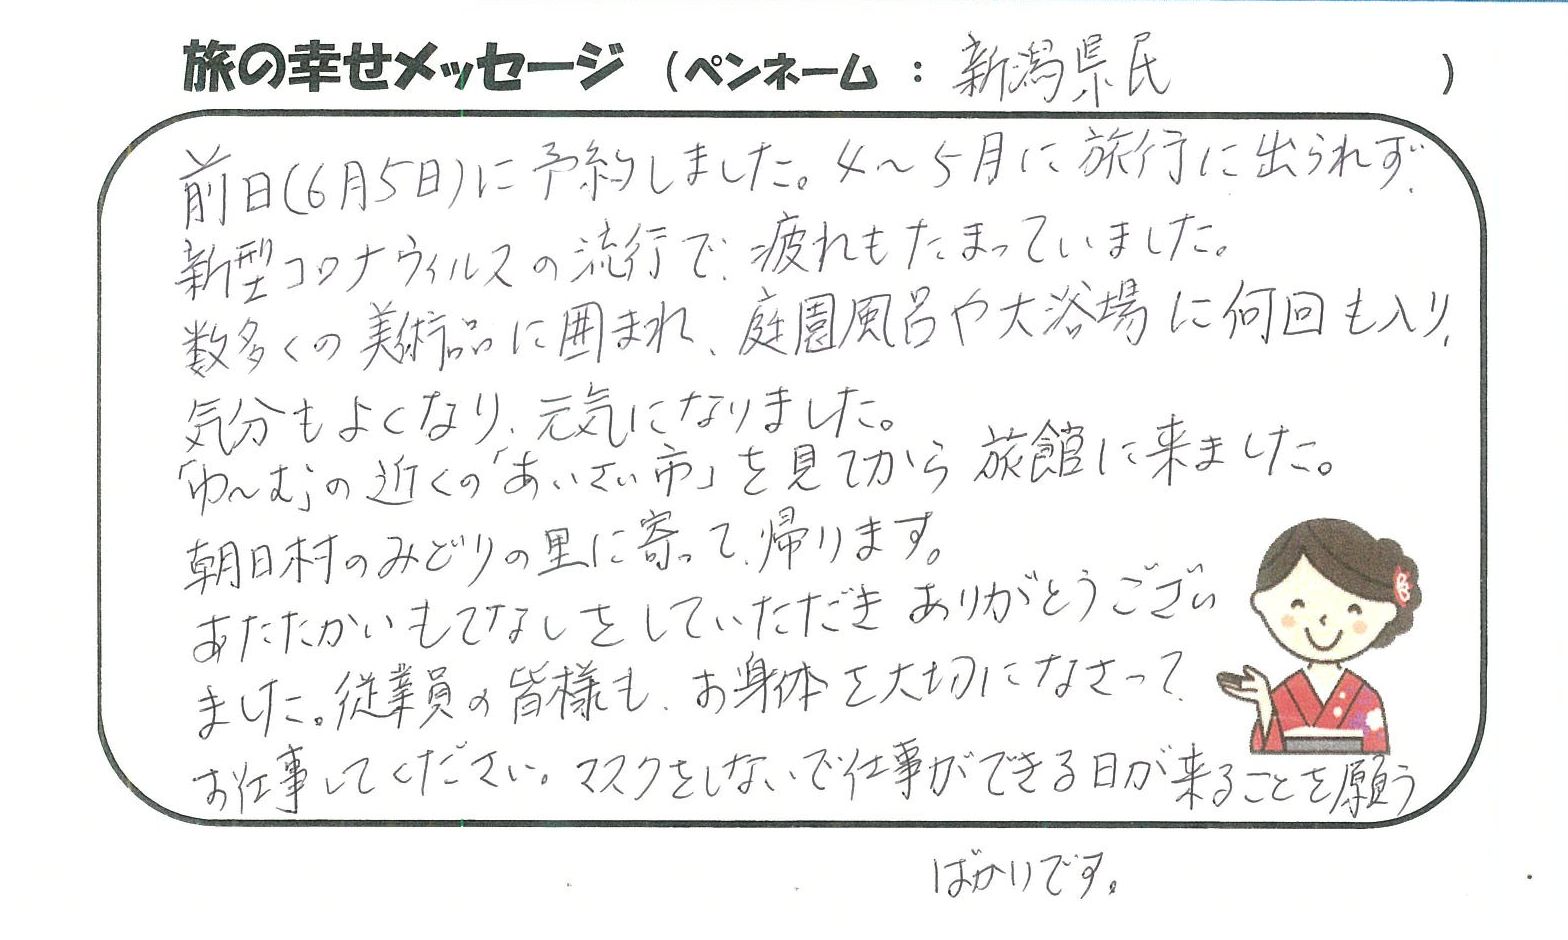 旅の幸せメッセージ (ペンネーム : 新潟県民 )
前日(6月5日)に予約しました。4～5月に旅行に出られず、
新型コロナウィルスの流行で、疲れもたまっていました。
数多くの美術品に囲まれ、庭園風呂や大浴場に何回も入り、
気分もよくなり、元気になりました。
「ゆ～む」の近くの「あいさい市」を見てから旅館に来ました。
朝日村のみどりの里に寄って、帰ります。
あたたかいもてなしをしていただきありがとうござい
ました。従業員の皆様も、お身体を大切になさって、
お仕事してください。マスクをしないで仕事ができる日が来ることを願う
ばかりです。